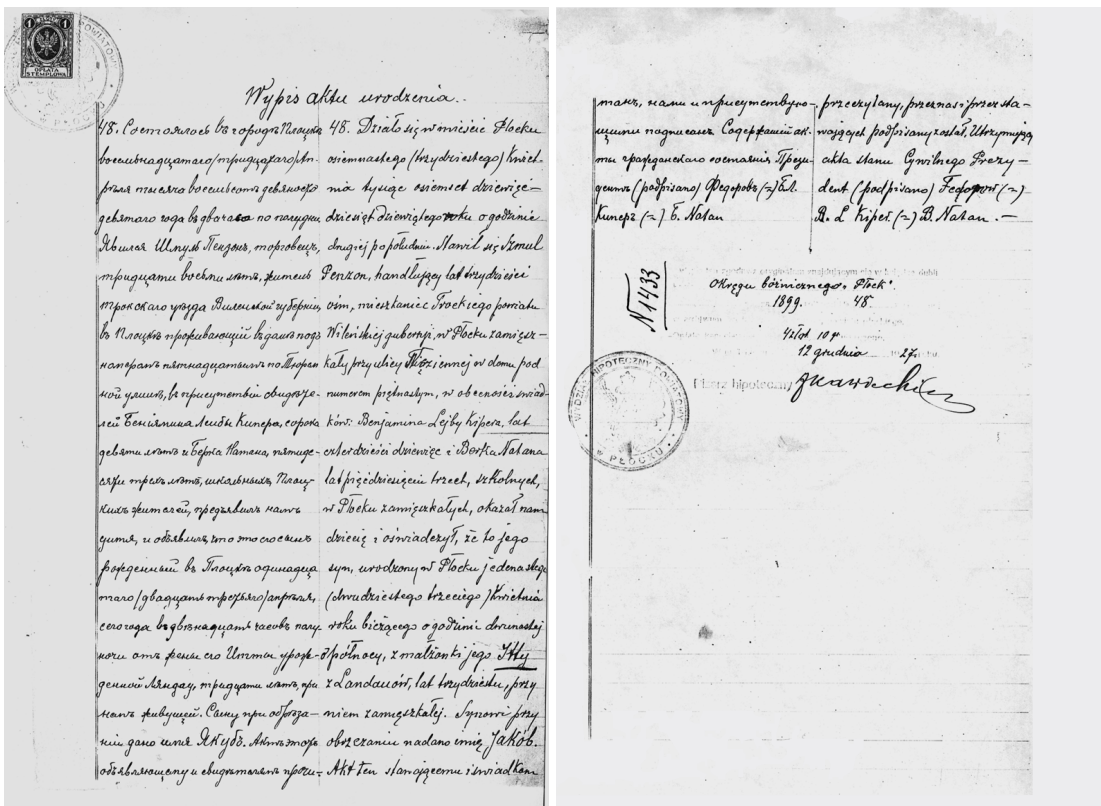 1 1
OPŁATA
STEMPLOWA
Wypis aktu urodzenia.
48. Состоялось въ городѣ Плоцкѣ
восемьнадцатаго/тридцатаго/Ап-
рѣля тысяча восемьсотъ девяносто
девятаго года въ два часа по полудни
Явился Шмуль Пензонъ, торговецъ,
тридцати восьми лѣтъ, житель
Трокскаго уѣзда Виленской губерніи,
въ Плоцкѣ проживающій въ домѣ подъ
номеромъ пятнадцатымъ по Тюрем
ной улицѣ, въ присутствіи свидѣте-
лей Беніямина Лейбы Кипера, сорока
девяти лѣтъ и Берка Натана, пятиде-
сяти трехъ лѣтъ, школьныхъ, Плоц-
кихъ жителей, предъявилъ намъ
дитя, и объявилъ, что это его сынъ
рожденный въ Плоцкѣ одинадца
таго/двадцать третьяго/апрѣля,
сего года въ двѣнадцать часовъ полу
ночи отъ жены его Итты урож-
денной Ляндау, тридцати лѣтъ, при
немъ живущей. Сыну при обрѣза-
ніи дано имя Якубъ. Актъ этотъ
объявляющему и свидѣтелямъ прочи-
48. Działo się w mieście Płocku
osiemnastego (trzydziestego) Kwiet-
nia tysiąc osiemset dziewięć-
dziesiąt dziewiątego roku o godzinie
drugiej po południu. Stawił się Szmul
Penzon, handlujący lat trzydzieści
ośm, mieszkaniec Trockiego powiatu
Wileńskiej gubernji, w Płocku zamiesz-
kały przy ulicy Więziennej w domu pod
numerem piętnastym, w obecności świad-
ków: Benjamina Lejby Kipera, lat
czterdzieści dziewięć i Berka Natana
lat pięćdziesięciu trzech, szkolnych,
w Płocku zamięszkałych, okazał nam
dziecię i oświadczył, że to jego
syn, urodzony w Płocku jedenastego
(dwudziestego trzeciego) Kwietnia
roku bieżącego o godzinie dwunastej
o północy, z małżonki jego Itty
z Landauów, lat trzydziestu, przy
niem zamięszkałej. Synowi przy
obrzezaniu nadano imię Jakób.
Akt ten stawającemu i świadkom
танъ, нами и присутствую-
щими подписанъ. Содержащій ак-
ты гражданскаго состоянія Прези-
дентъ (подписано) Федоровъ (=) Б.Л.
Киперъ (=) Б. Natan
przeczytany, przez nas i przez sta-
wających podpisany został. Utrzymujący
akta stanu Cywilnego Prezy-
dent (podpisano) Fedorow (=)
B. L Kiper (=) B. Natan. —
N 1433
Okręgu bóżnicznego "Płock"
1899. 48.
12 grudnia 27.
Pisarz hipoteczny
WYDZIAŁ HIPOTECZNY POWIATOWY
W PŁOCKU